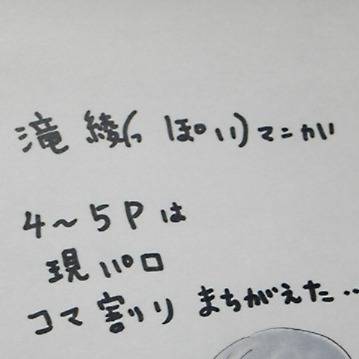 滝 綾(っぽい)マンガ
4～5Pは
現パロ
コマ割り まちがえた…